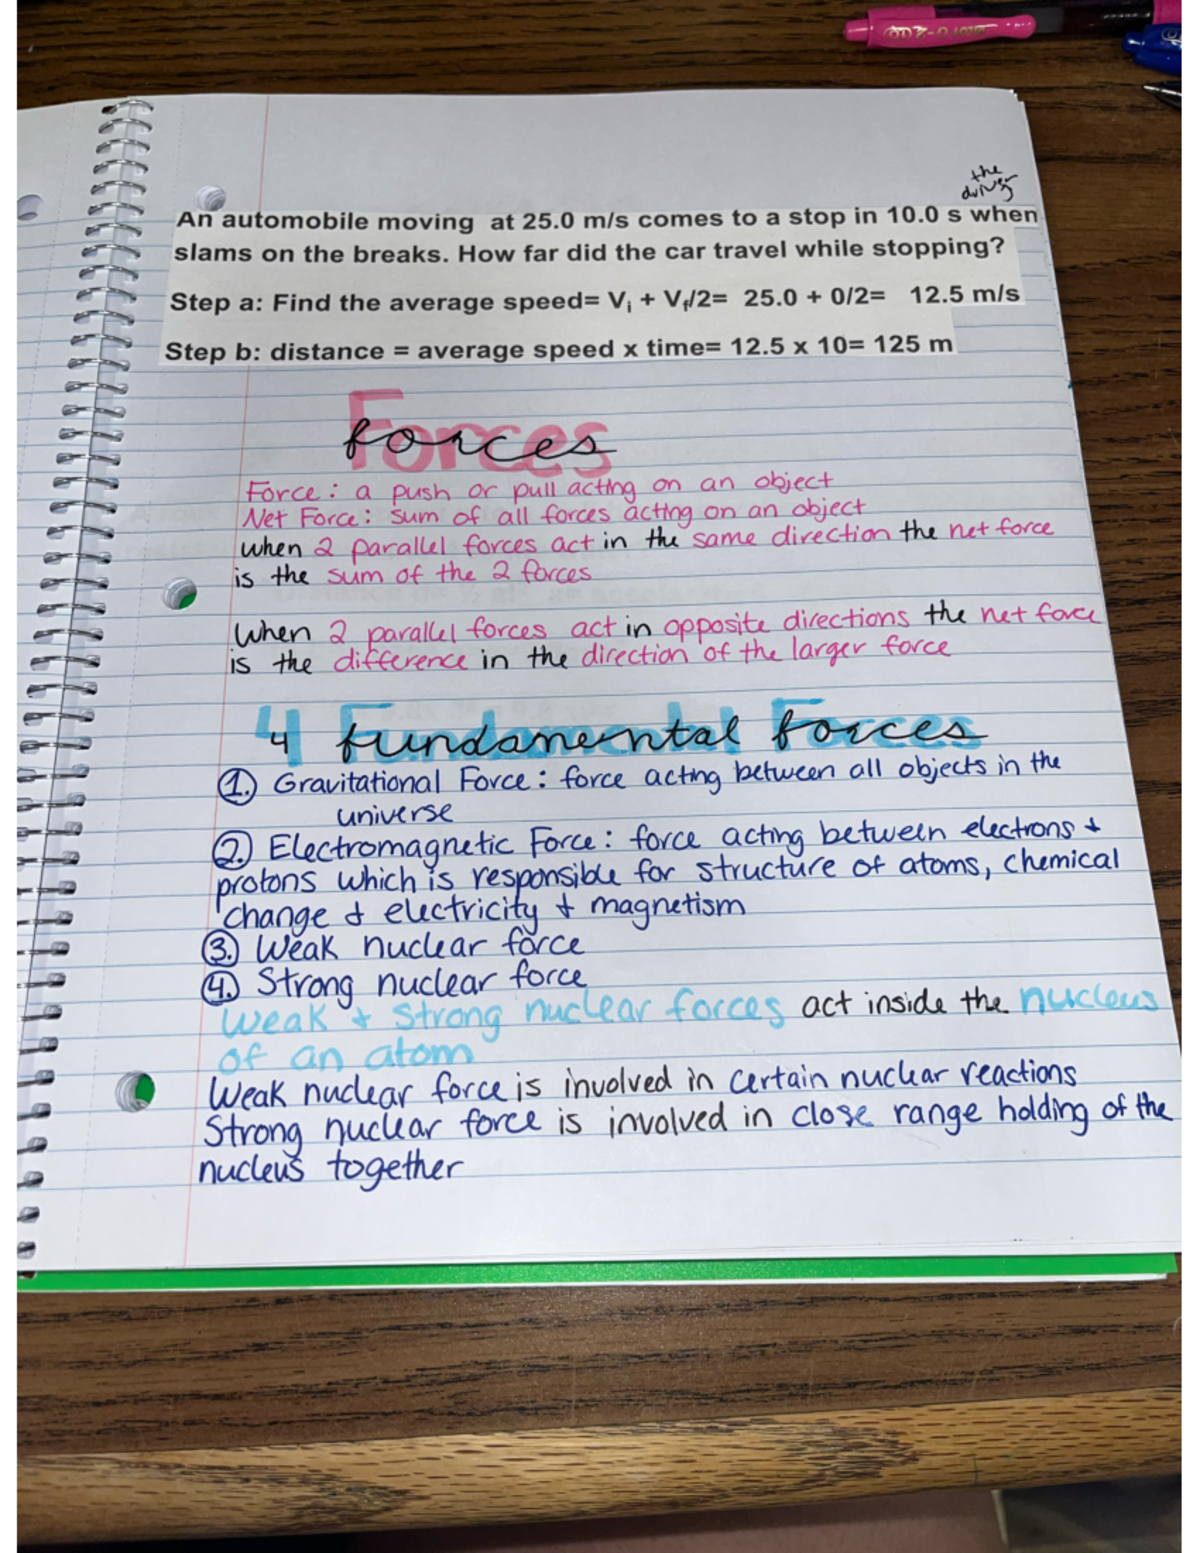 the
driver
An automobile moving at 25.0 m/s comes to a stop in 10.0 s when
slams on the breaks. How far did the car travel while stopping?
Step a: Find the average speed= Vi + Vf/2= 25.0 + 0/2= 12.5 m/s
Step b: distance = average speed x time= 12.5 x 10= 125 m
Forces
forces
Force: a push or pull acting on an object
Net Force: sum of all forces acting on an object
when 2 parallel forces act in the same direction the net force
is the sum of the 2 forces
When 2 parallel forces act in opposite directions the net force
is the difference in the direction of the larger force
4 Fundamental Forces
4 fundamental forces
1. Gravitational Force: force acting between all objects in the
universe
2. Electromagnetic Force: force acting between electrons +
protons which is responsible for structure of atoms, chemical
change & electricity + magnetism
3. Weak nuclear force
4. Strong nuclear force
Weak + Strong nuclear forces act inside the nucleus
of an atom
Weak nuclear force is involved in certain nuclear reactions
Strong nuclear force is involved in close range holding of the
nucleus together